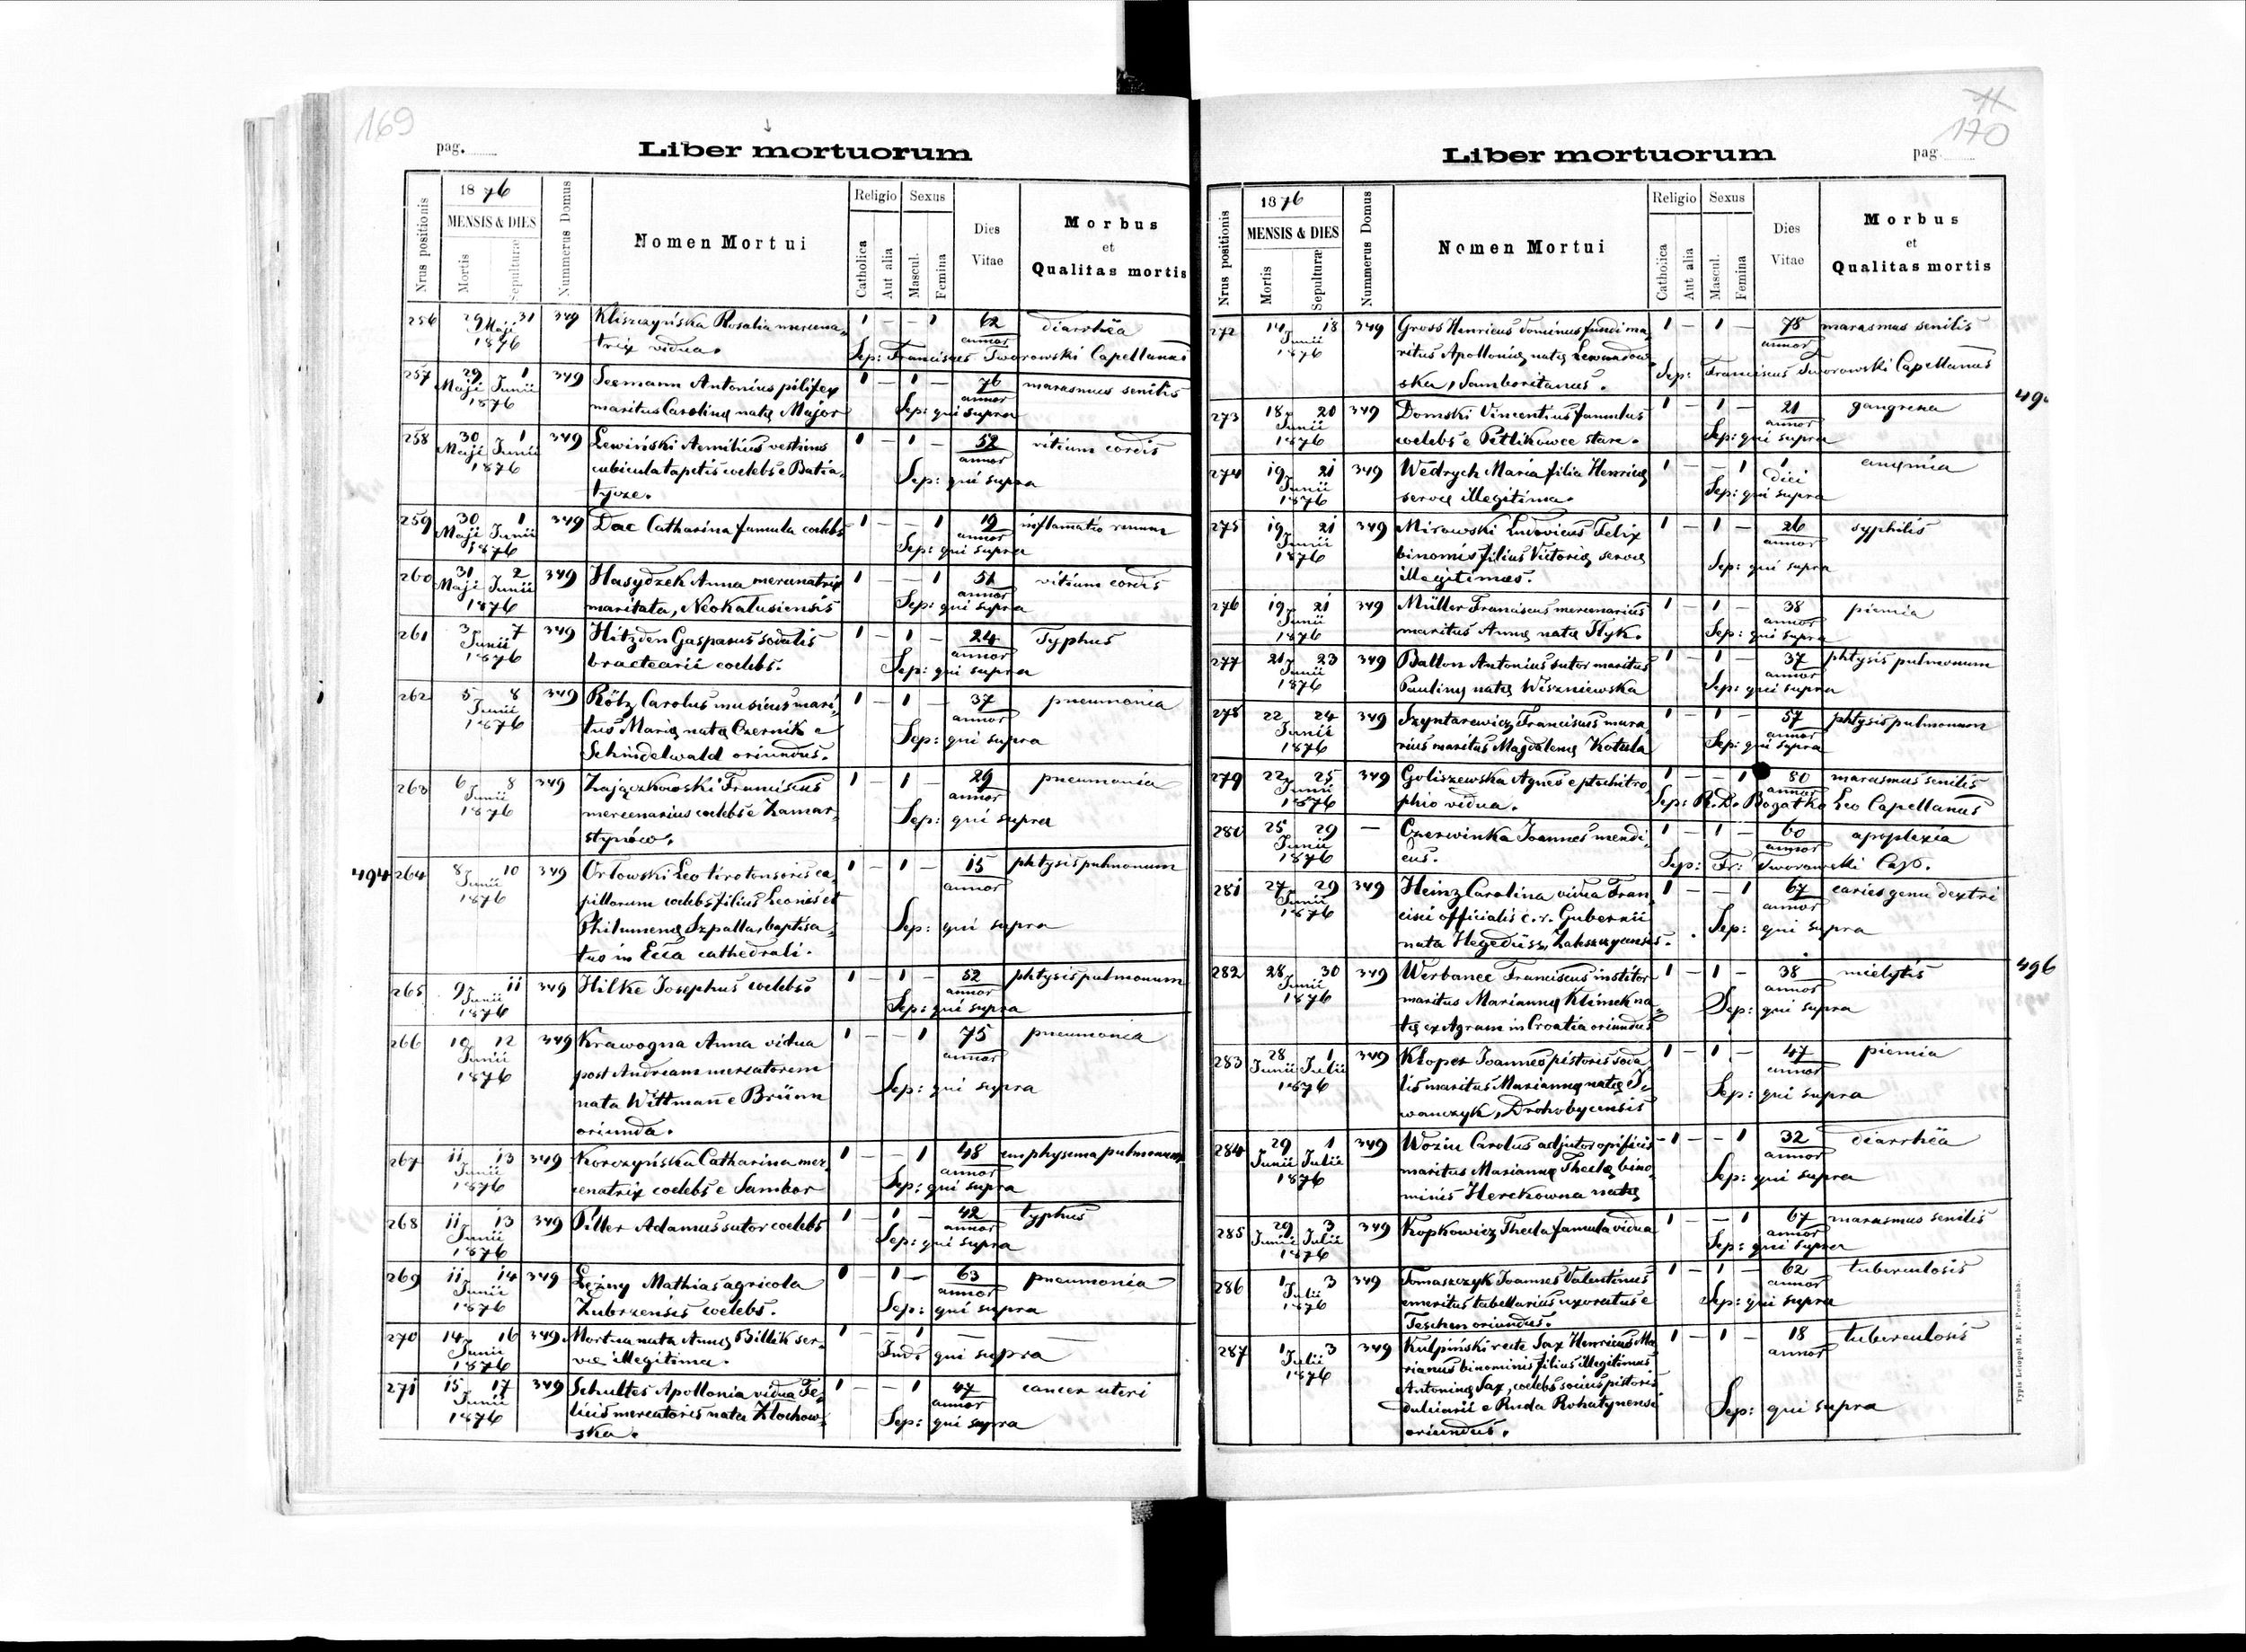 169
pag.
Liber mortuorum
Nrus positionis
1876
MENSIS & DIES
Mortis
Sepulturæ
Nummerus Domus
Nomen Mortui
Religio
Catholica
Aut alia
Sexus
Mascul.
Femina
Dies
Vitae
Morbus
et
Qualitas mortis
256 29 Maji 31 1876 349 Kliszczyńska Rosalia mercena- 1 — — 1 62 annor diarrhëa
trix vidua. Sep: Franciscus Tworowski Capellanus
257 29 Maji 1 Junii 1876 349 Seemann Antonius pilifex 1 — 1 — 76 annor marasmus senilis
maritus Carolinę natę Major Sep: qui supra
258 30 Maji 1 Junii 1876 349 Lewiński Aemilius vestiens 1 — 1 — 52 annor vitium cordis
cubicula tapetis coelebs e Batia- Sep: qui supra
tycze.
259 30 Maji 1 Junii 1876 349 Dac Catharina famula coelebs 1 — — 1 19 annor inflamatio renum
Sep: qui supra
260 31 Maji 2 Junii 1876 349 Hasydzek Anna mercenatrix 1 — — 1 51 annor vitium cordis
maritata, Neokalusiensis Sep: qui supra
261 3 Junii 7 1876 349 Hitzden Gasparus sodalis 1 — 1 — 24 annor Typhus
bractearii coelebs. Sep: qui supra
262 5 Junii 8 1876 349 Rötz Carolus musicus mari- 1 — 1 — 37 annor pneumonia
tus Marię natę Czernik e Sep: qui supra
Schindelwald oriundus.
263 6 Junii 8 1876 349 Zajączkowski Franciscus 1 — 1 — 29 annor pneumonia
mercenarius coelebs e Zamar- Sep: qui supra
stynów.
494 264 8 Junii 10 1876 349 Orłowski Leo tiro tonsoris ca- 1 — 1 — 15 annor phtysis pulmonum
pillorum coelebs filius Leonis et
Philumenę Szpallar baptisa- Sep: qui supra
tus in Ecca cathedrali.
265 9 Junii 11 1876 349 Hilke Josephus coelebs 1 — 1 — 52 annor phtysis pulmonum
Sep: qui supra
266 10 Junii 12 1876 349 Krawogna Anna vidua 1 — — 1 75 annor pneumonia
post Andream mercatorem Sep: qui supra
nata Wittmann e Brünn
oriunda.
267 11 Junii 13 1876 349 Korczyńska Catharina mer- 1 — — 1 48 annor emphysema pulmonum
cenatrix coelebs e Sambor Sep: qui supra
268 11 Junii 13 1876 349 Piller Adamus sutor coelebs 1 — 1 — 42 annor typhus
Sep: qui supra
269 11 Junii 14 1876 349 Łężny Mathias agricola 1 — 1 — 63 annor pneumonia
Zubrzensis coelebs. Sep: qui supra
270 14 Junii 16 1876 349 Mortua nata Annę Billik ser- 1 — 1 — —
vę illegitima. Ind: qui supra
271 15 Junii 17 1876 349 Schultes Apollonia vidua Fe- 1 — — 1 47 annor cancer uteri
licis mercatoris nata Złochow- Sep: qui supra
ska.
170
pag.
Liber mortuorum
Nrus positionis
1876
MENSIS & DIES
Mortis
Sepulturæ
Nummerus Domus
Nomen Mortui
Religio
Catholica
Aut alia
Sexus
Mascul.
Femina
Dies
Vitae
Morbus
et
Qualitas mortis
272 14 Junii 18 1876 349 Gross Henricus dominus fundi ma- 1 — 1 — 78 annor marasmus senilis
ritus Apollonię natę Lewandow-
ska, Samboritanus. Sep: Franciscus Tworowski Capellanus
273 18 Junii 20 1876 349 Domski Vincentius famulus 1 — 1 — 21 annor gangrena
coelebs e Petlikowce stare. Sep: qui supra
274 19 Junii 21 1876 349 Wedrych Maria filia Henricę 1 — — 1 1 diei anęmia
servę illegitima. Sep: qui supra
275 19 Junii 21 1876 349 Mirowski Ludovicus Felix 1 — 1 — 26 annor syphilis
binomis filius Victorię servę Sep: qui supra
illegitimus.
276 19 Junii 21 1876 349 Müller Franciscus mercenarius 1 — 1 — 38 annor piemia
maritus Annę natę Hyk. Sep: qui supra
277 21 Junii 23 1876 349 Ballon Antonius sutor maritus 1 — 1 — 37 annor phtysis pulmonum
Paulinę natę Wiszniewska Sep: qui supra
278 22 Junii 24 1876 349 Szyntarewicz Franciscus mura- 1 — 1 — 57 annor phtysis pulmonum
rius maritus Magdalenę Kotula Sep: qui supra
279 22 Junii 25 1876 349 Goliszewska Agnes e ptochitro- 1 — — 1 80 annor marasmus senilis
phio vidua. Sep: R. D. Bogatko Leo Capellanus
280 25 Junii 29 1876 — Czerwinka Joannes mendi- 1 — 1 — 60 annor apoplexia
cus. Sep: Fr: Tworowski Cap.
281 27 Junii 29 1876 349 Heinz Carolina vidua Fran- 1 — — 1 67 annor caries genu dextri
cisci officialis c. r. Gubernii Sep: qui supra
nata Hegedüsz, Zaleszczycensis.
282 28 Junii 30 1876 349 Werbanec Franciscus institor 1 — 1 — 38 annor mielytis 496
maritus Mariannę Klimek na- Sep: qui supra
tę ex Agram in Croatia oriundus
283 28 Junii 1 Julii 1876 349 Kłoper Joannes pistoris soda- 1 — 1 — 47 annor piemia
lis maritus Mariannę natę I- Sep: qui supra
wanczyk, Drohobycensis
284 29 Junii 1 Julii 1876 349 Woziu Carolus adjutor opificis — 1 — 1 32 annor diarrhëa
maritus Mariannę Theclę bino- Sep: qui supra
minis Herckowna natę
285 29 Junii 3 Julii 1876 349 Kopkowicz Thecla famula vidua 1 — — 1 67 annor marasmus senilis
Sep: qui supra
286 1 Julii 3 1876 349 Tomaszczyk Joannes Valentinus 1 — 1 — 62 annor tuberculosis
emeritus tabellarius uxoratus e Sep: qui supra
Teschen oriundus.
287 1 Julii 3 1876 349 Kulpiński recte Sax Henricus Ma- 1 — 1 — 18 annor tuberculosis
rianus binominis filius illegitimus
Antoninę Sax, coelebs socius pistoris
dulciarii e Ruda Rohatynensi Sep: qui supra
oriundus.
Typis Leiopol M. F. Poremba.